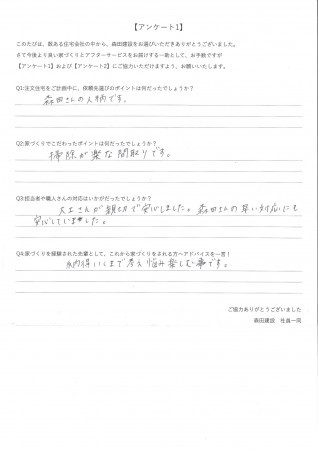 【アンケート1】
このたびは、数ある住宅会社の中から、森田建設をお選びいただきありがとうございました。
さて今後より良い家づくりとアフターサービスをお届けする一貫として、お手数ですが
【アンケート1】および【アンケート2】にご協力いただけますよう、お願いいたします。
Q1:注文住宅をご計画中に、依頼先選びのポイントは何だったでしょうか？
森田さんの人柄です。
Q2:家づくりでこだわったポイントは何だったでしょうか？
掃除が楽な間取りです。
Q3:担当者や職人さんの対応はいかがだったでしょうか？
大工さんが親切で安心しました。森田さんの早い対応にも
安心していました。
Q4:家づくりを経験された先輩として、これから家づくりをされる方へアドバイスを一言！
納得いくまで考え悩み楽しむ事です。
ご協力ありがとうございました
森田建設　社員一同